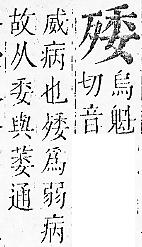 烏魁
切音
威病也爲弱病
故从委與萎通